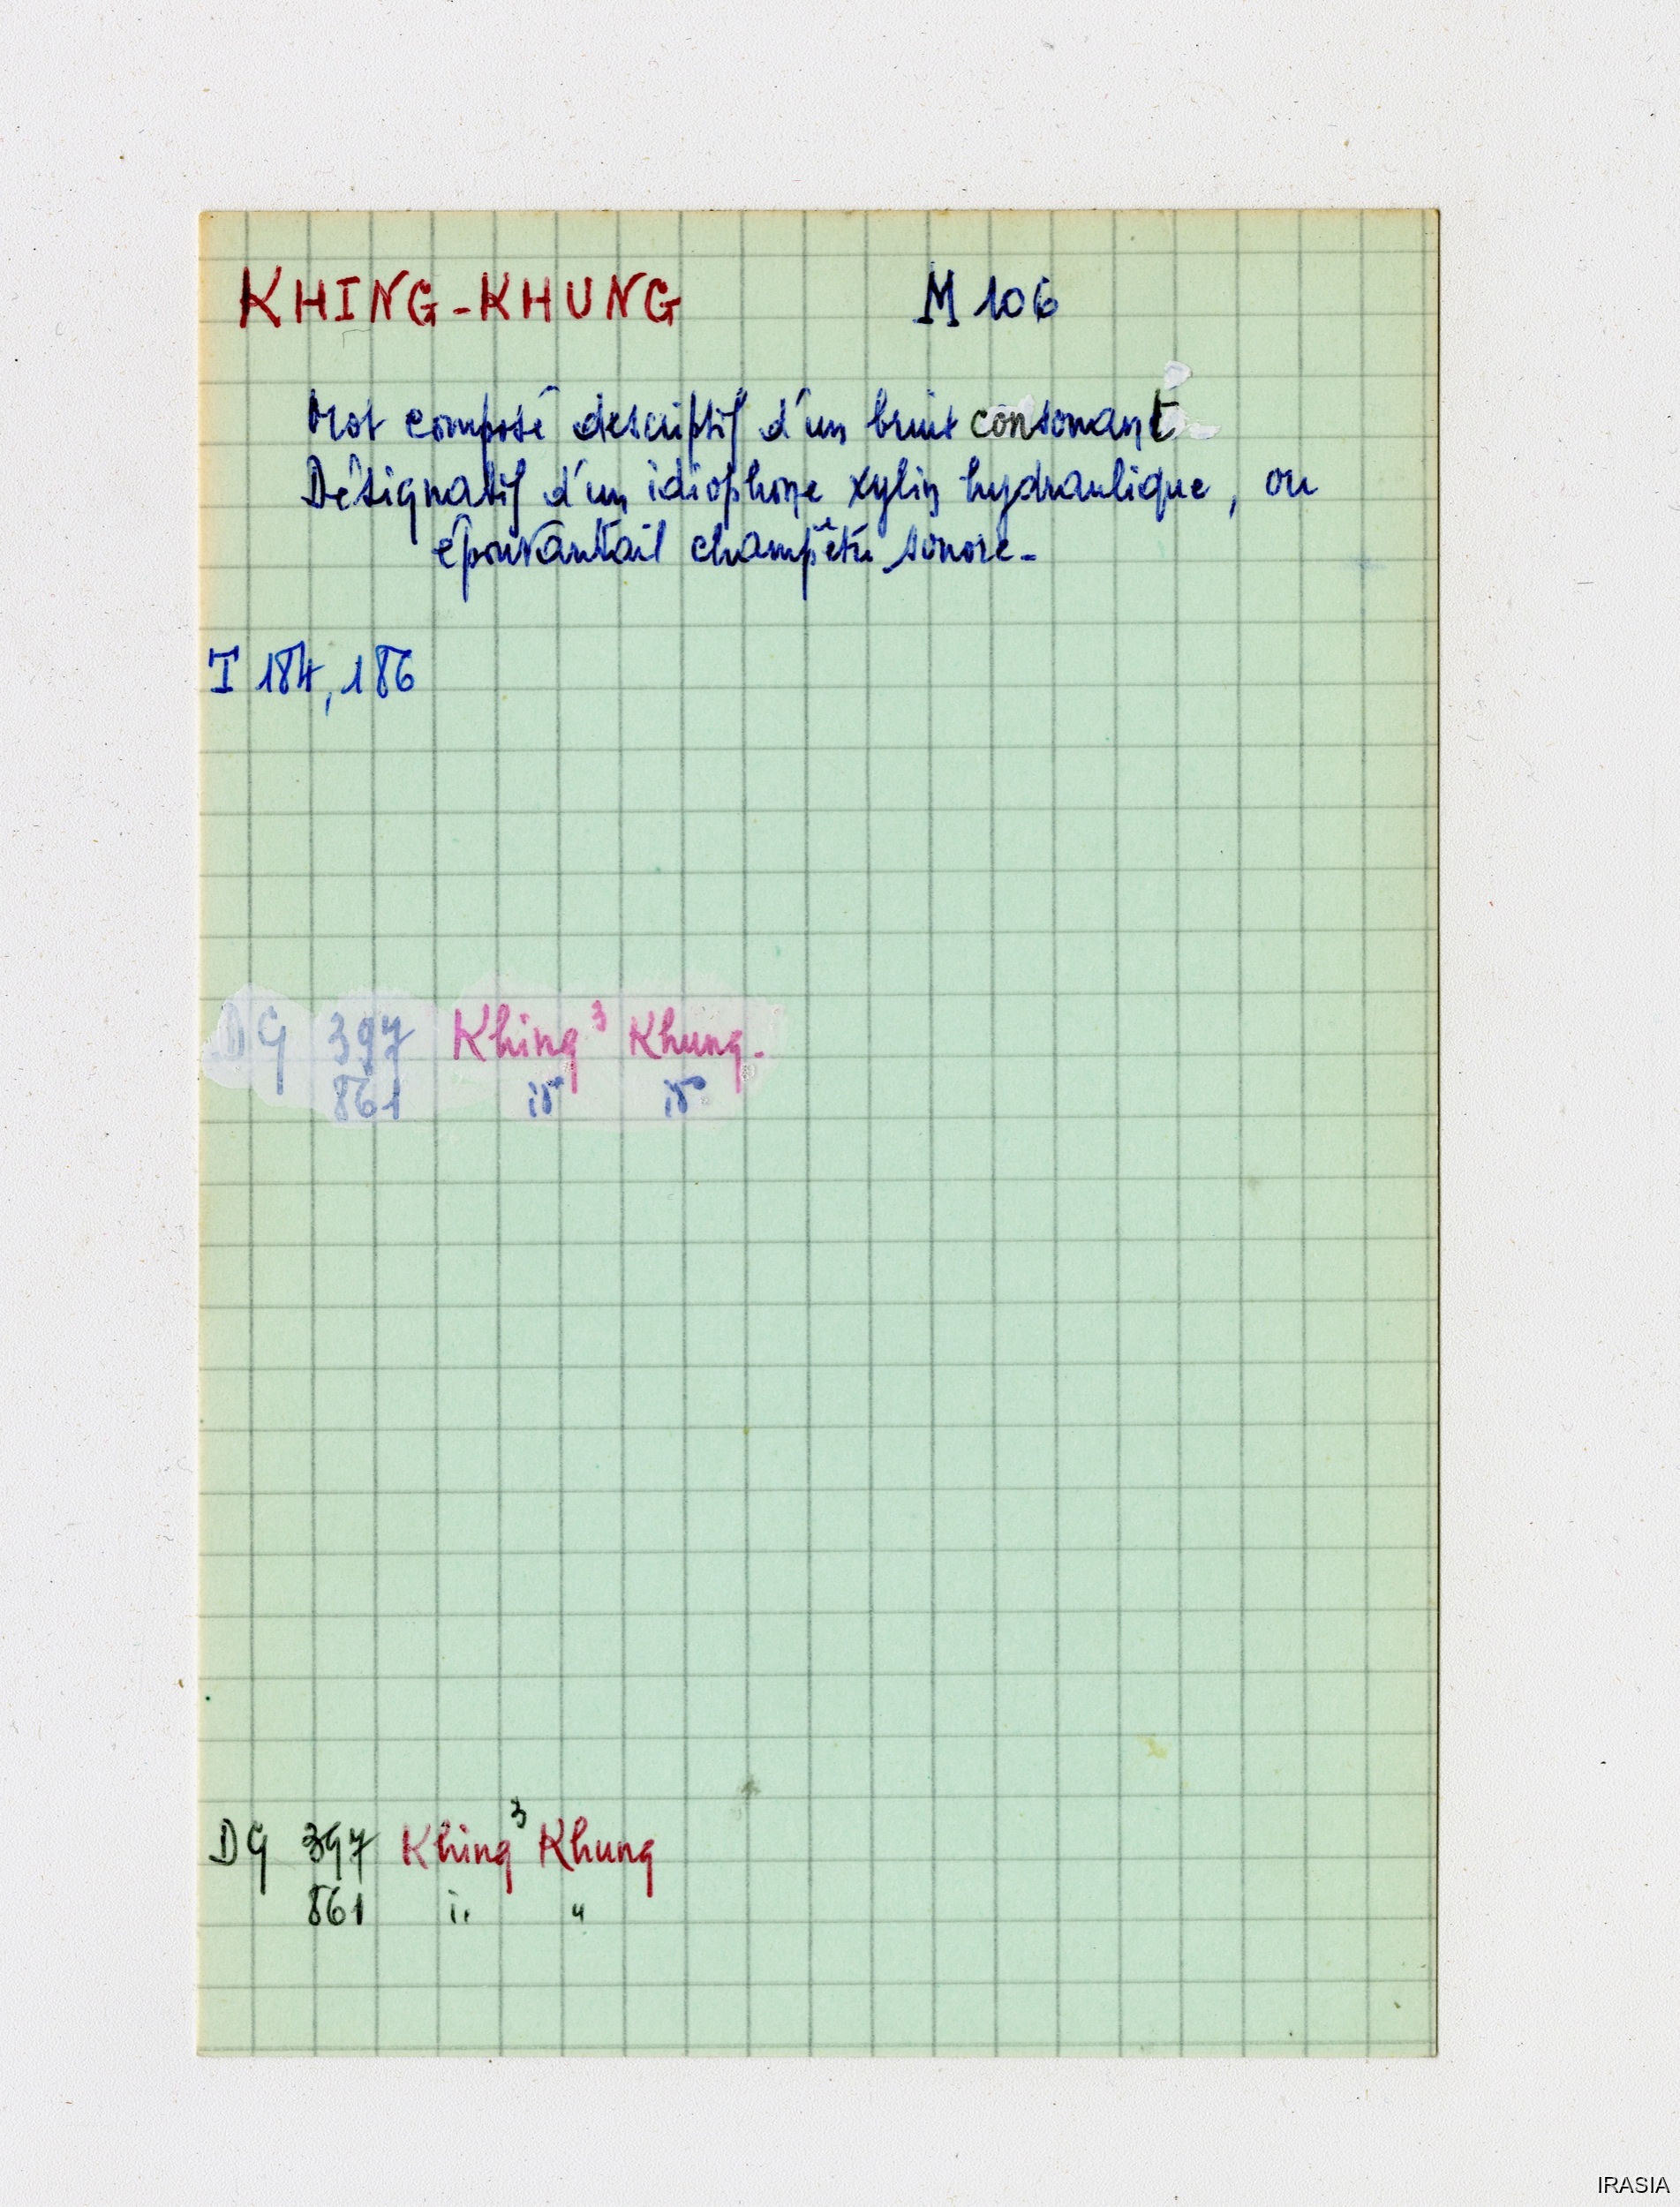 KHING-KHUNG M 106
Mot composé descriptif d'un bruit consonant
Désignatif d'un idiophone xylin hydraulique, ou
épouvantail champêtre sonore-
I 184, 186
DG 397 Khing³ Khung.
861 id id
DG 397 Khing³ Khung
861 i. "
IRASIA